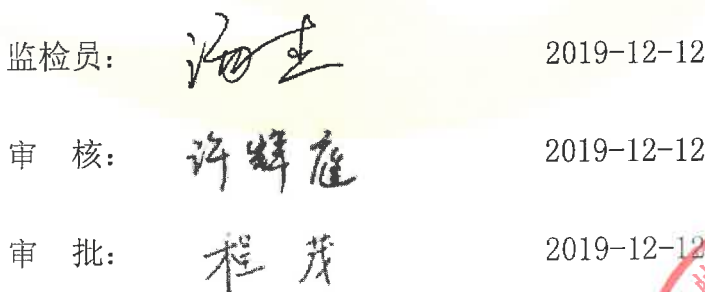 监检员： 2019-12-12
审 核： 许辉庭 2019-12-12
审 批： 程茂 2019-12-12